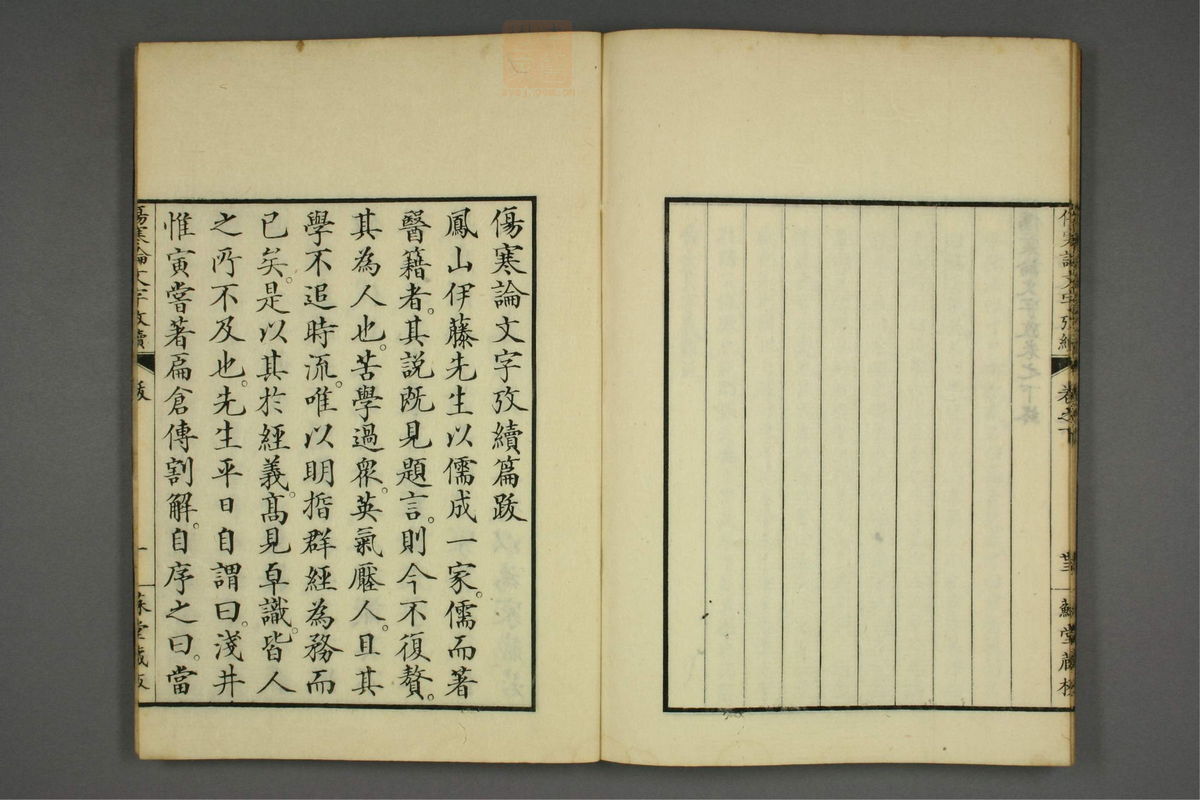 傷寒論文字攷續篇跋
鳳山伊藤先生以儒成一家。儒而著
醫籍者。其說既見題言。則今不復贅。
其為人也。苦學過衆。英氣壓人。且其
學不追時流。唯以明指群經為務而
已矣。是以其於經義。髙見卓識。皆人
之所不及也。先生平日自謂曰。淺井
惟寅嘗著扁倉傳割解。自序之曰。當
傷寒論文字攷續
跋
一
蘇堂藏板
傷寒論文字攷續
卷之下
蘇堂藏板